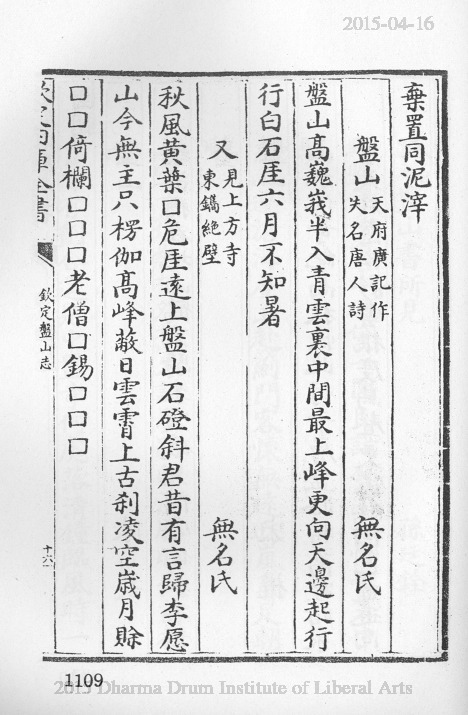 2015-04-16
棄置同泥滓
盤山 天府廣記作
失名唐人詩 無名氏
盤山髙巍峩半入青雲裏中間最上峰更向天邊起行
行白石厓六月不知暑
又 見上方寺
東鐫絶壁 無名氏
秋風黄葉□危厓遠上盤山石磴斜君昔有言歸李愿
山今無主只楞伽髙峰蔽日雲霄上古刹凌空歳月賖
□□倚欄□□□老僧□錫□□□
欽定四庫全書
欽定盤山志
十六
1109
2015 Dharma Drum Institute of Liberal Arts